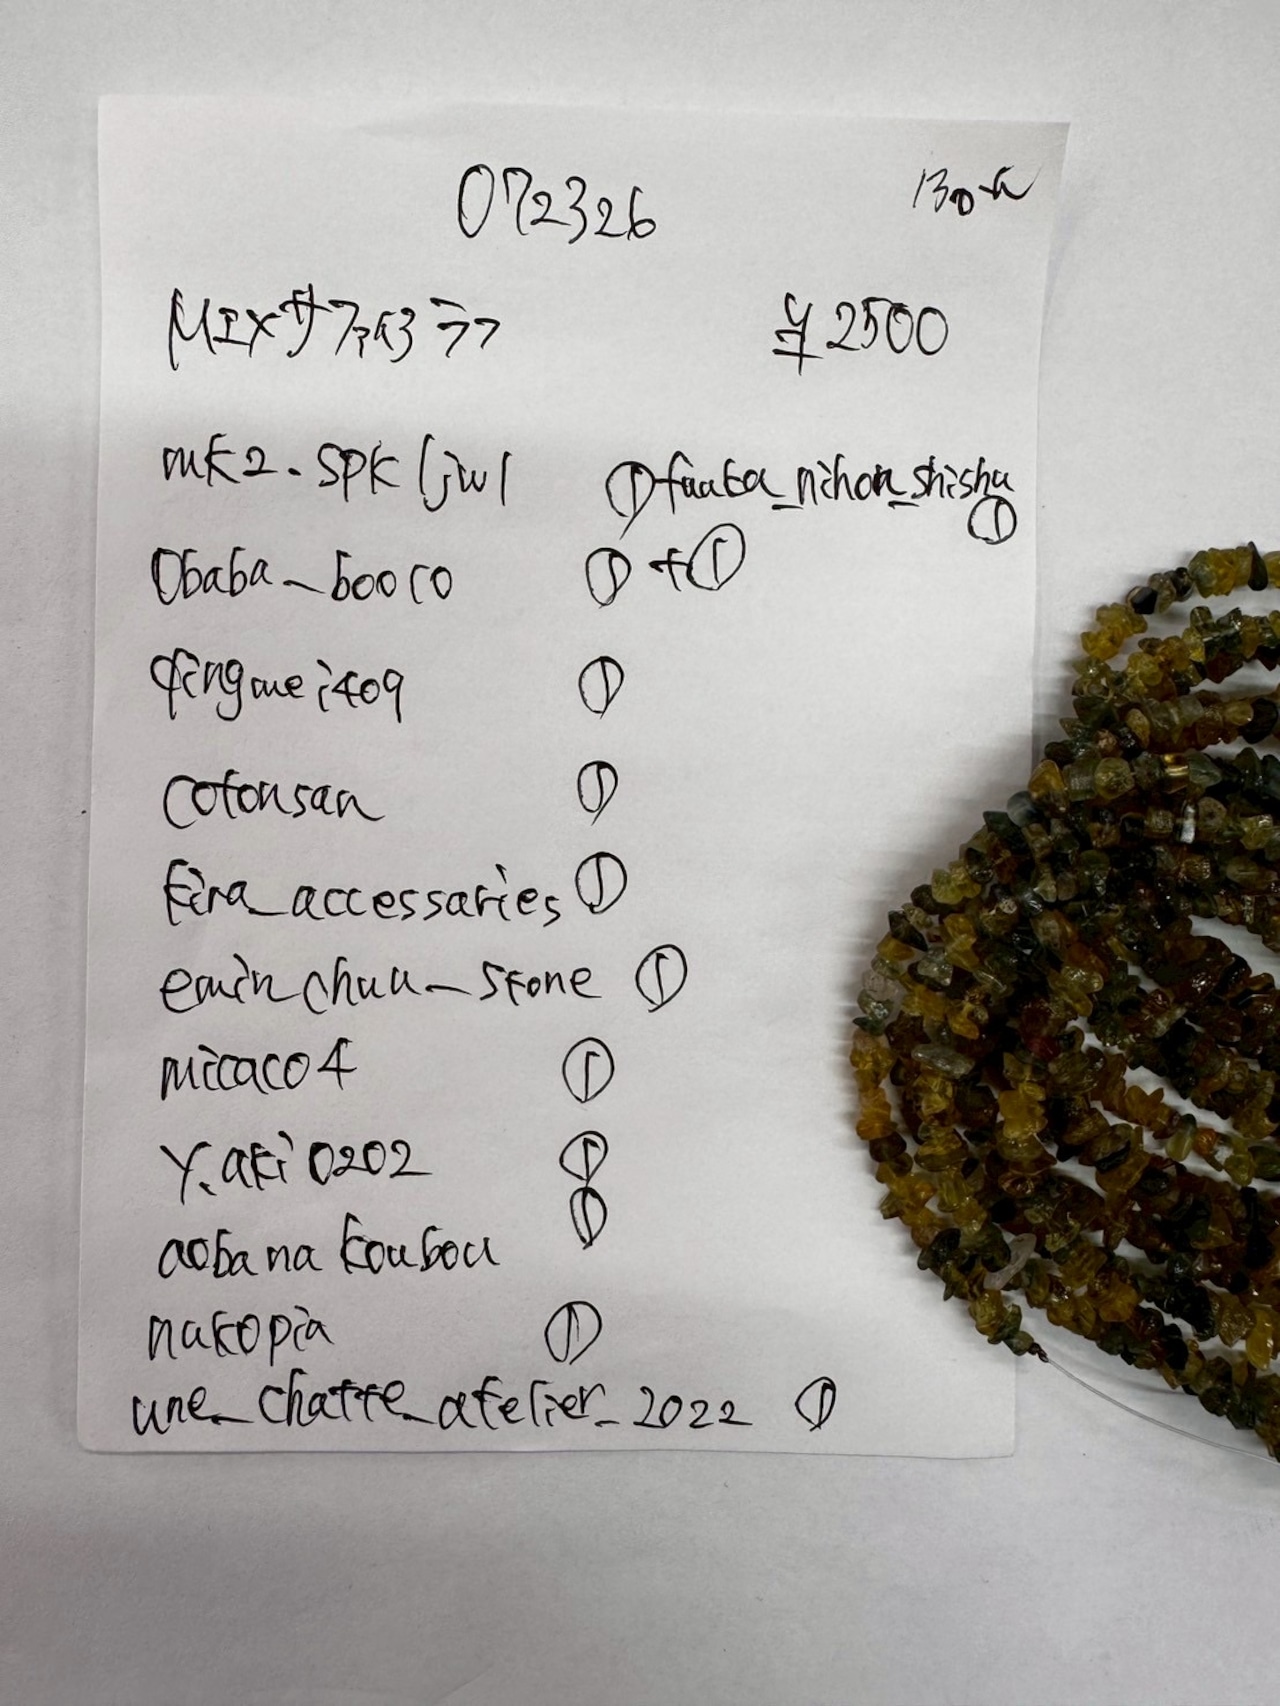 072326
MIXサファイヤ ¥2500
mk2.spk(jwl ① fuuka_nihon_shishu ①
Obaba_booco ①+①
qingmei409 ①
cotonsan ①
kira_accessaries ①
eminchuu_stone ①
micaco4 ①
Y.aki0202 ①
aobanakoubou ①
nakopia ①
une_chatte_atelier_2022 ①